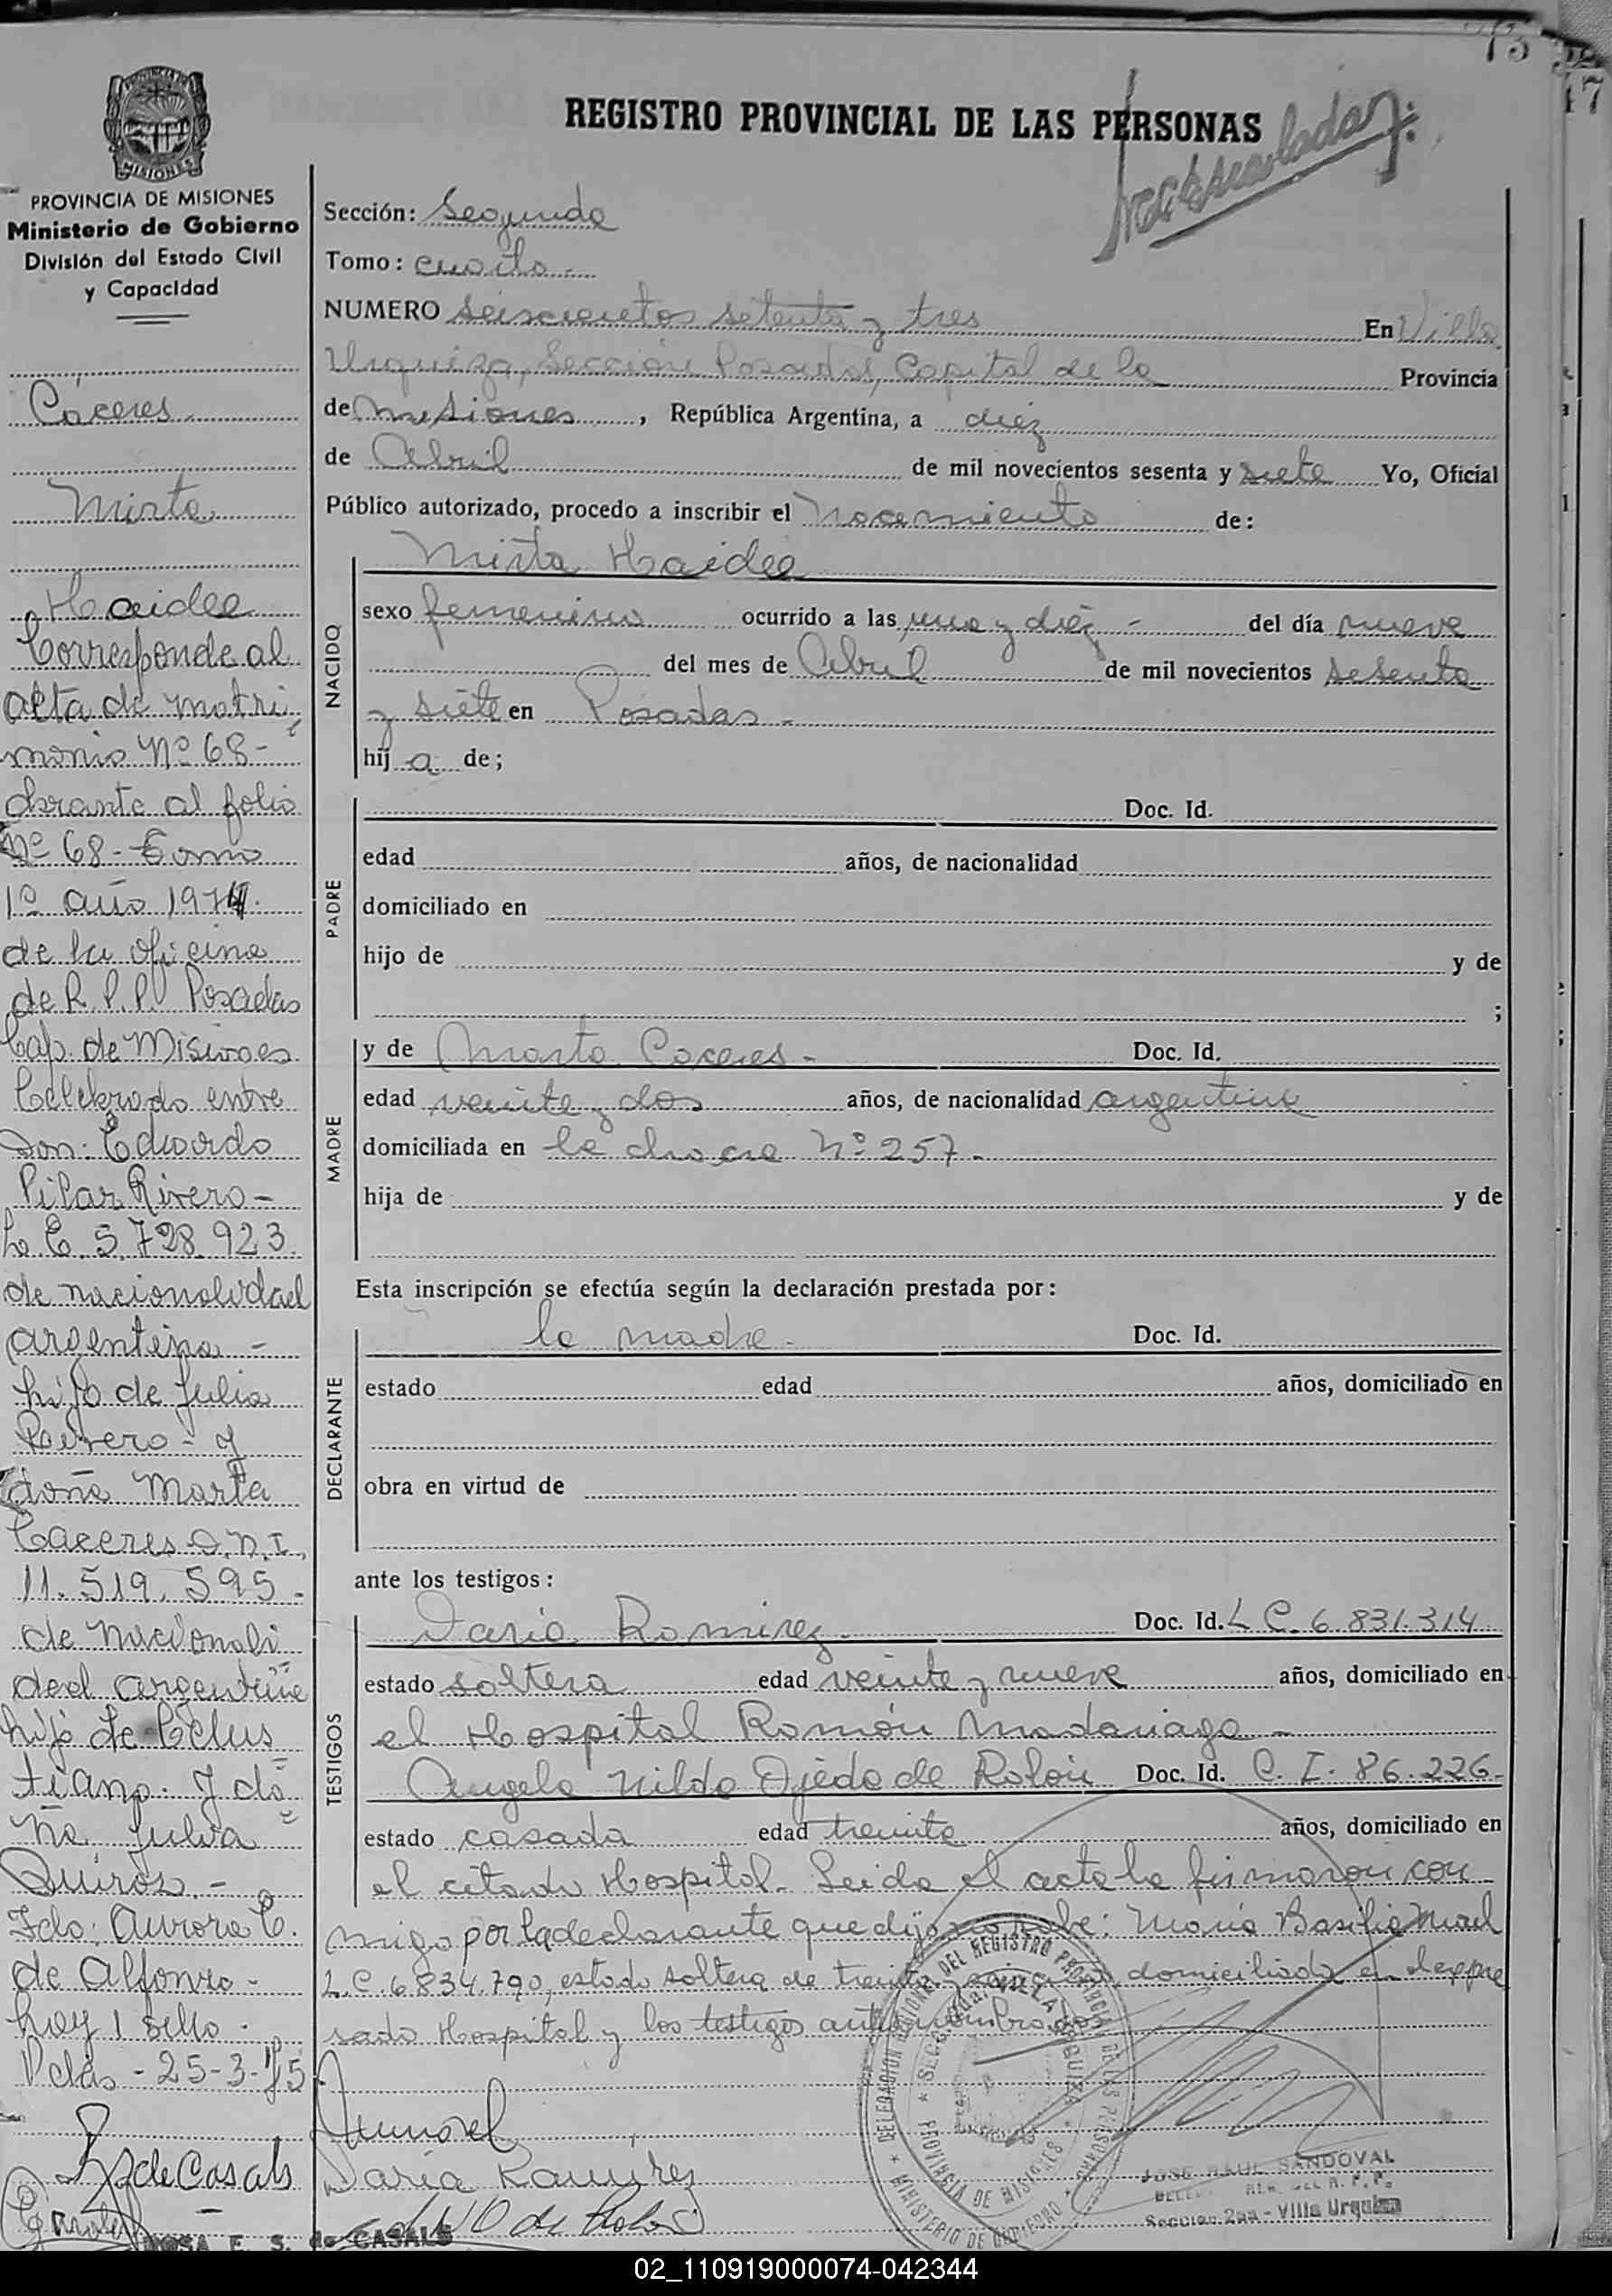 73
17
REGISTRO PROVINCIAL DE LAS PERSONAS
MISIONES
PROVINCIA DE MISIONES
Ministerio de Gobierno
División del Estado Civil
y Capacidad
Cáceres
Mirta
Haidee
Corresponde al
acta de matri
monio Nº 68-
obrante al folio
Nº 68- Tomo
1º año 1974.
de la oficina
de R.P.P. Posadas
Cap. de Misiones
Celebrado entre
Don: Eduardo
Pilar Rivero-
L.E. 5.728.923.
de nacionalidad
argentina -
hijo de Julia
Rivero - y
doña Marta
Caceres D.N.I.
11.519.595-
de nacionali
dad argentina
hija de Celus
tiano. Y do
ña Julia
Quiróz.-
Fdo: Aurora C.
de Alfonzo-
hay 1 sello.
Pdas - 25-3-75
de Casals
ROSA E. S. de CASALS
Sección: Segunda
Tomo: cuarto.-
NUMERO seiscientos setenta y tres En Villa
Urquiza, Sección Posadas, Capital de la Provincia
de Misiones, República Argentina, a diez
de Abril de mil novecientos sesenta y siete Yo, Oficial
Público autorizado, procedo a inscribir el nacimiento de:
NACIDO
Mirta Haidee
sexo femenino ocurrido a las una y diez - del día nueve
del mes de Abril de mil novecientos sesenta
y siete en Posadas -
hij a de;
PADRE
Doc. Id.
edad años, de nacionalidad
domiciliado en
hijo de y de
;
MADRE
y de Marta Caceres - Doc. Id.
edad veinte y dos años, de nacionalidad argentina
domiciliada en la chacra Nº 257.-
hija de y de
Esta inscripción se efectúa según la declaración prestada por:
DECLARANTE
la madre - Doc. Id.
estado edad años, domiciliado en
obra en virtud de
ante los testigos:
TESTIGOS
Daria Ramirez - Doc. Id. L C. 6.831.314
estado soltera edad veinte y nueve años, domiciliado en
el Hospital Ramón Madariaga -
Angela Nilda Ojeda de Rolón Doc. Id. C. I. 86.226-
estado casada edad treinta años, domiciliado en
el citado Hospital. Leida el acta la firmaron con
migo por la declarante que dijo no sabe: María Basilia
L.C. 6834.790, estado soltera de treinta domiciliada en el expre
sado Hospital y los testigos antes nombrados
Daria Ramirez
DELEGACION DEL REGISTRO PROVINCIAL DE LAS PERSONAS
MINISTERIO DE GOBIERNO
PROVINCIA DE MISIONES
VILLA URQUIZA
JOSE RAUL SANDOVAL
Seccion 2da - Villa Urquiza
02_110919000074-042344